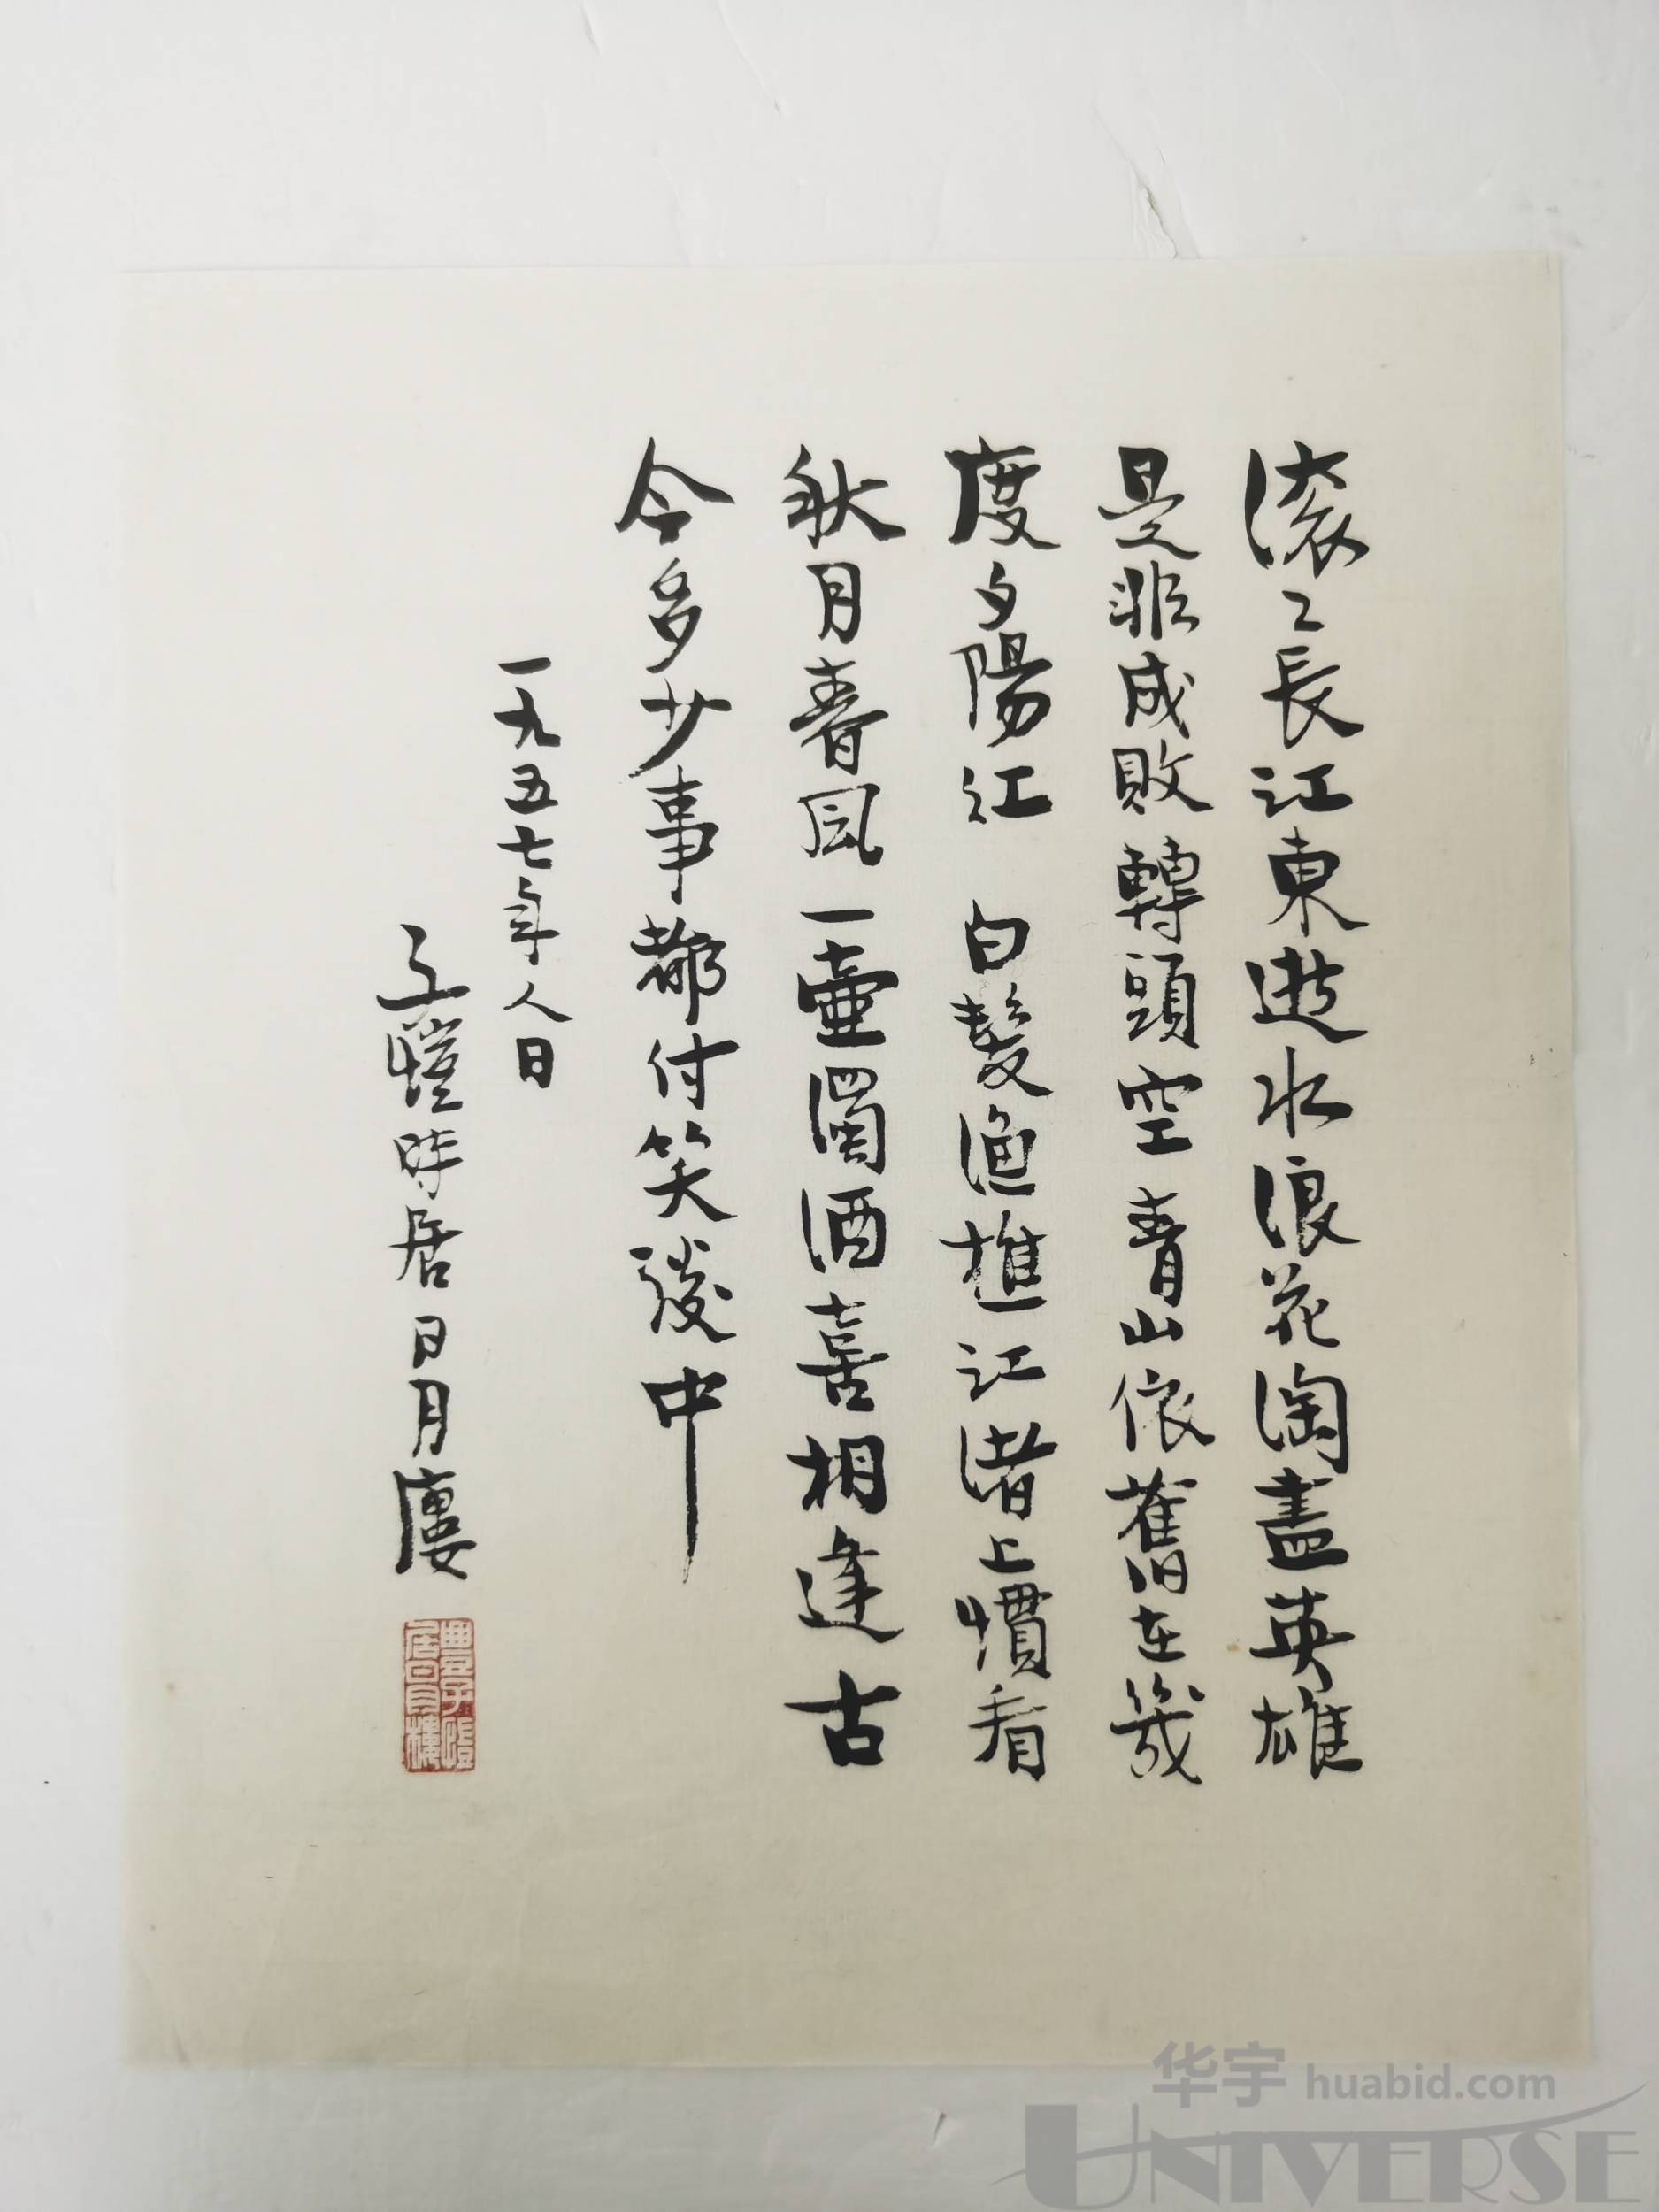 滚〻長江東逝水浪花淘盡英雄
是非成敗轉頭空青山依舊在幾
度夕陽江 白髮漁樵江渚上慣看
秋月春風一壺濁酒喜相逢古
今多少事都付笑談中
一九五七年人日
子愷時居日月廔
豐子愷
居日月樓
华宇 huabid.com
UNIVERSE